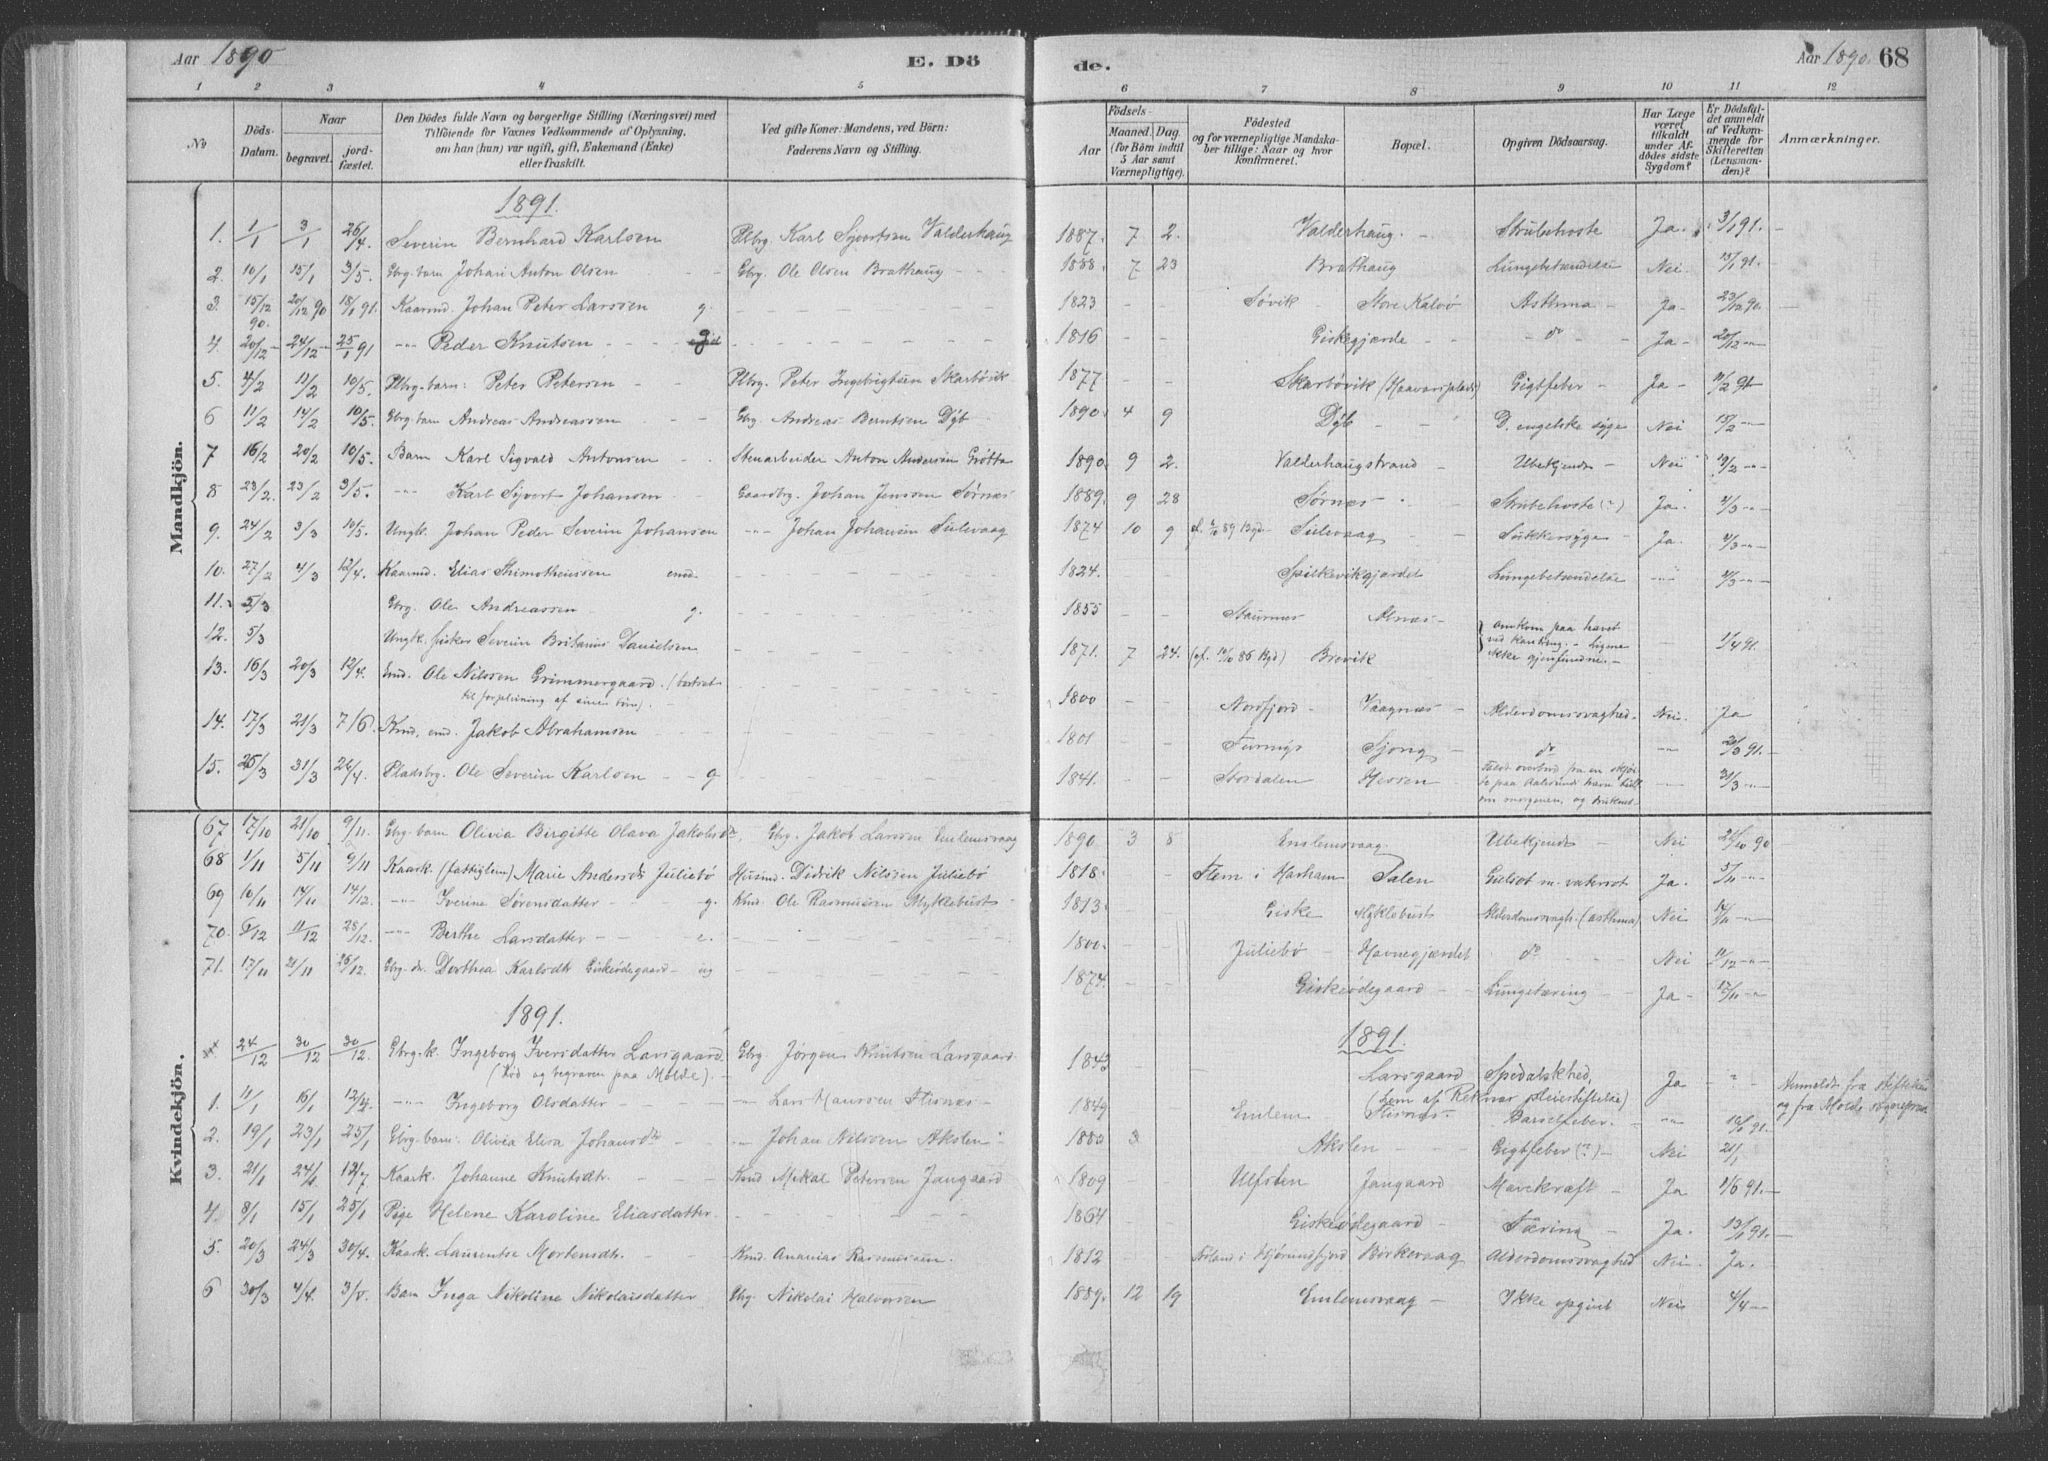 Aar 1890
E. Dö
de.
Aar 1890
68
1 2 3 4 5 6 7 8 9 10 11 12
No
Döds-Datum.
Naar
begravet.
jord-fæstet.
Den Dödes fulde Navn og borgerlige Stilling (Næringsvei) med
Tilföiende for Voxnes Vedkommende af Oplysning,
om han (hun) var ugift, gift, Enkemand (Enke)
eller fraskilt.
Ved gifte Koner: Mandens, ved Börn:
Faderens Navn og Stilling.
Födsels-
Aar
Maaned. Dag.
(for Börn indtil
5 Aar samt
Værnepligtige).
Födested
og for værnepligtige Mandska-
ber tillige: Naar og hvor
konfirmeret.
Bopæl.
Opgiven Dödsaarsag.
Har Læge
været
tilkaldt
under Af-
dödes sidste
Sygdom?
Er Dödsfal-
det anmeldt
af Vedkom-
mende for
Skifteretten
(Lensman-
den)?
Anmærkninger.
Mandkjön.
1891.
1. 1/1 3/1 26/4. Severin Bernhard Karlsen Plbrg. Karl Sjvertsen Valderhaug 1887. 7 2. Valderhaug Strubehoste Ja 3/1 91.
2. 10/1 15/1 3/5. Gbrg. barn Johan Anton Olsen Gbrg. Ole Olsen Brathaug 1888. 7 23 Brathaug Lungebetændelse Nei 15/1 91.
3. 15/12 90. 20/12 90 18/1 91. Kaarmd. Johan Peter Larssen g. 1823 Søvik Store Kalvö Asthma Ja 23/12 90.
4. 20/12 24/12 25/1 91 "" Peder Knutsen g 1816 Giskegjærde do Ja 20/12 ""
5. 4/2 11/2 10/5. Plbrg. barn: Peter Petersen Plbrg. Peter Ingebrigtsen Skarbövik 1877 Skarbövik (Haavarsplads) Gigtfeber Ja 11/2 91
6 11/2 14/2 10/5. Gbrg. barn Andreas Andreassen Gbrg. Andreas Berntsen Dÿb 1890. 4 9 Dÿb D. engelske syge Nei 13/2 ""
7 16/2 20/2 10/5. Barn Karl Sigvald Antonsen Stenarbeider Anton Andersen Grötta 1890. 9 2. Valderhaugstrand Ubekjendt Nei 19/2 ""
8 23/2. 23/2 3/5. "" Karl Sjvert Johansen Gaardbrg. Johan Jenssen Sørnæs 1889. 9 28 Sørnæs Strubehoste (?) Ja. 2/3 ""
9. 24/2 3/3 10/5. Ungk. Johan Peder Severin Johansen "" Johan Johansen Sulevaag 1874 10 9 Sulevaag Sukkersyge Ja. 2/3 ""
10. 27/2 4/3 12/4. Kaarmd. Elias Thimotheussen emd. 1824. Spilkevikgjærdet Lungebetændelse "" 2/3 ""
11. 5/3 Gbrg. Ole Andreassen g. 1855 Staurnæs Alnæs
12. 5/3 Ungk. fisker Severin Britanus Danielsen 1871. 7 24. Brevik 1/4 91.
omkom paa havet
ved kantring. Ligene
ikke gjenfundne.
13. 16/3 20/3 12/4. Emd. Ole Nilssen Grimmergaard. (bortsat
til forpleining af sinen sön). 1800 Nordfjord Vaagnæs Alderdomssvaghed. Nei. Ja
14. 17/3 21/3 7/6. Kmd, emd. Jakob Abrahamsen 1801 Sjong do "" 20/3 91.
15. 25/3 31/3 26/4. Pladsbrg. Ole Severin Karlsen g 1841. Stordalen Hessen 31/3 ""
67 17/10 21/10 9/11. Gbrg. barn Olivia Birgitte Olava Jakobsdr. Gbrg. Jakob Larssen Emlemsvaag 1890 3 8 Emlemsvaag Ubekjendt Nei 21/10 90
68 1/11 5/11 9/11 Kaark. (fattiglem) Marie Andersdr Juliebö Husmd. Didrik Nilssen Juliebö 1818. Flem i Harham Salen Gulsot m. vatersot Ja. 5/11 ""
69 10/11 14/11 14/12. "" Iverine Sörensdatter g. Kmd. Ole Rasmussen Myklebust 1813. Giske Myklebust Alderdomssvagh. (asthma) Nei ""
70. 5/12 11/12 28/12. "" Berthe Larsdatter e. 1800. Juliebö Havnegjærdet do Nei 11/12 ""
71. 17/11 21/11 26/12. Gbrg. dr. Dorthea Karlsdtr Giskeödegaard ug 1874. Giskeödegaard Lungetæring Ja 17/11 ""
Kvindekjön.
1891.
1891.
24/12 30/12 30/12. Gbrg. k. Ingeborg Iversdatter Larsgaard
(död og begraven paa Molde). Gbrg. Jørgen Knutsen Larsgaard 1843 Larsgaard
(Lem af Reknæs Pleiestiftelse) Spedalskhed, Ja " Anmeldt fra stiftelsen
og fra Molde sognepræst
1. 11/1 16/1 12/4. "" Ingeborg Olsdatter "" Lars Hanssen Flisnæs 1849 Emlem Flisnæs Barselfeber "" 91.
2. 19/1 23/1 25/1 Gbrg. barn: Olivia Elisa Johansdtr "" Johan Nilssen Akslen 3 Akslen Gigtfeber (?) Nei 21/1
3. 21/1 12/7 Kaark. Johanne Knutsdtr. Kmd Mikal Petersen Jangaard 1809 Ulfsten Jangaard Mavekræft Ja 1/6 91.
4. 8/1 15/1 25/1 Pige Helene Karoline Eliasdatter. 1864 Giskeödegaard Tæring Ja. 13/1 91.
5. 20/3 24/3 30/4. Kaark. Laurentse Mortensdtr. Kmd. Ananias Rasmussen. 1812 i Hjörundfjord Borkevaag Alderdomssvaghed Nei. Ja.
6 30/3 4/4. Barn Inga Nikoline Nikolaisdatter Gbrg. Nikolai Halvorsen 1889. 12 19 Emlemsvaag Ikke opgivet Nei 4/4